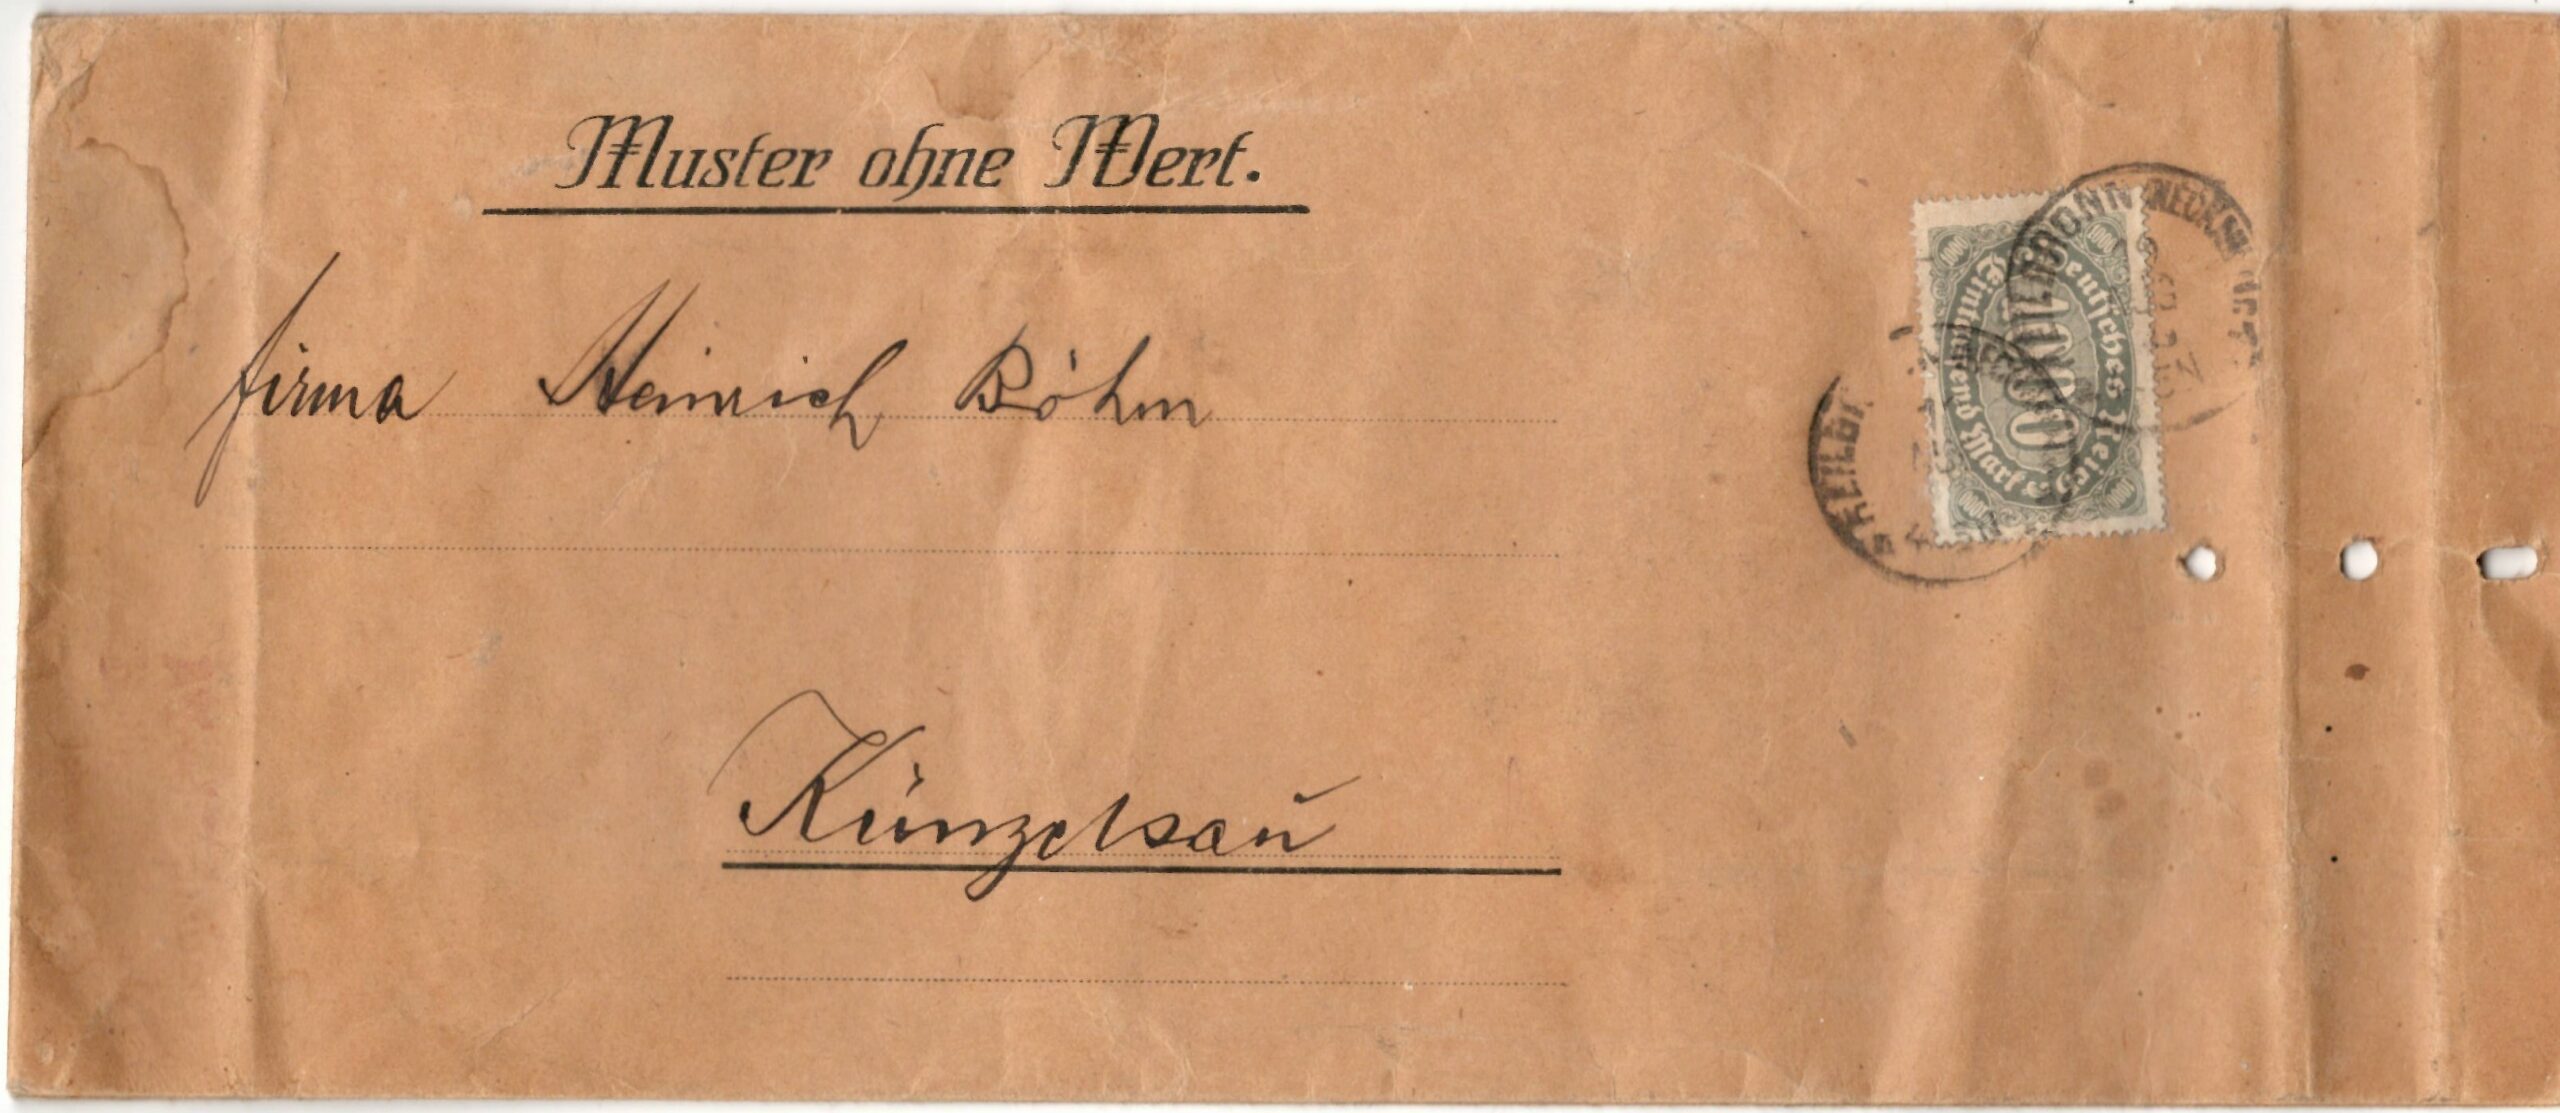 Muster ohne Wert.
Firma Heinrich Böhm
Künzelsau
Deutsches Reich
1000
Eintausend Mark
1000
1000
1000
1000
HEILBRONN